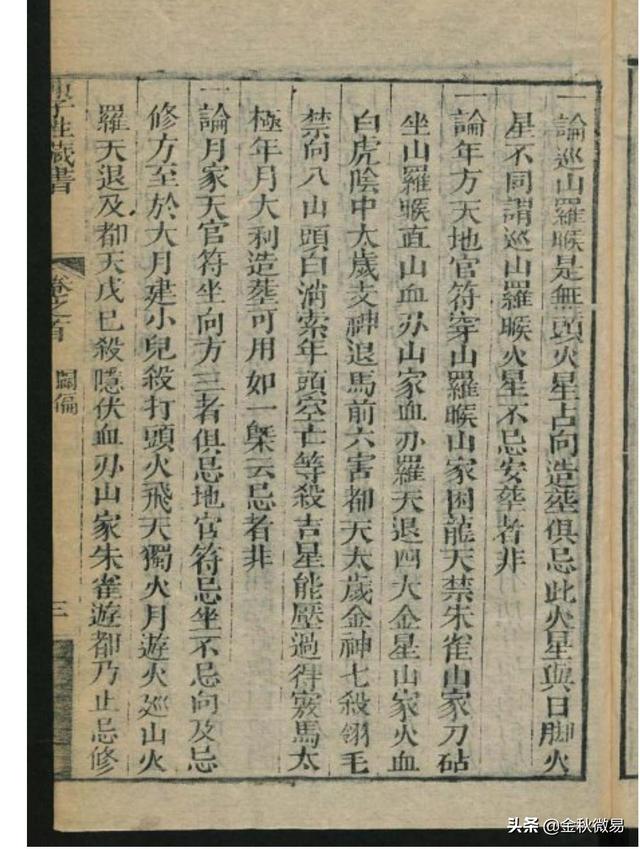 一論巡山羅睺是無頭火星占向造塟俱忌此火星與日脚火
星不同謂巡山羅睺火星不忌安塟者非
一論年方天地官符穿山羅睺山家困龍天禁朱雀山家刀砧
坐山羅睺直山血刃山家血刃羅天退四大金星山家火血
白虎陰中太歲支神退馬前六害都天太歲金神七殺翎毛
禁向八山頭白消索年頭空亡等殺吉星能壓過得竅馬太
極年月大利造塟可用如一槩云忌者非
一論月家天官符坐向方三者俱忌地官符忌坐不忌向及忌
修方至於大月建小兒殺打頭火飛天獨火月遊火廵山火
羅天退及都天戊巳殺隱伏血刃山家朱雀遊都乃止忌修
藏書
卷之首
闢僞
三
头条 @金秋微易